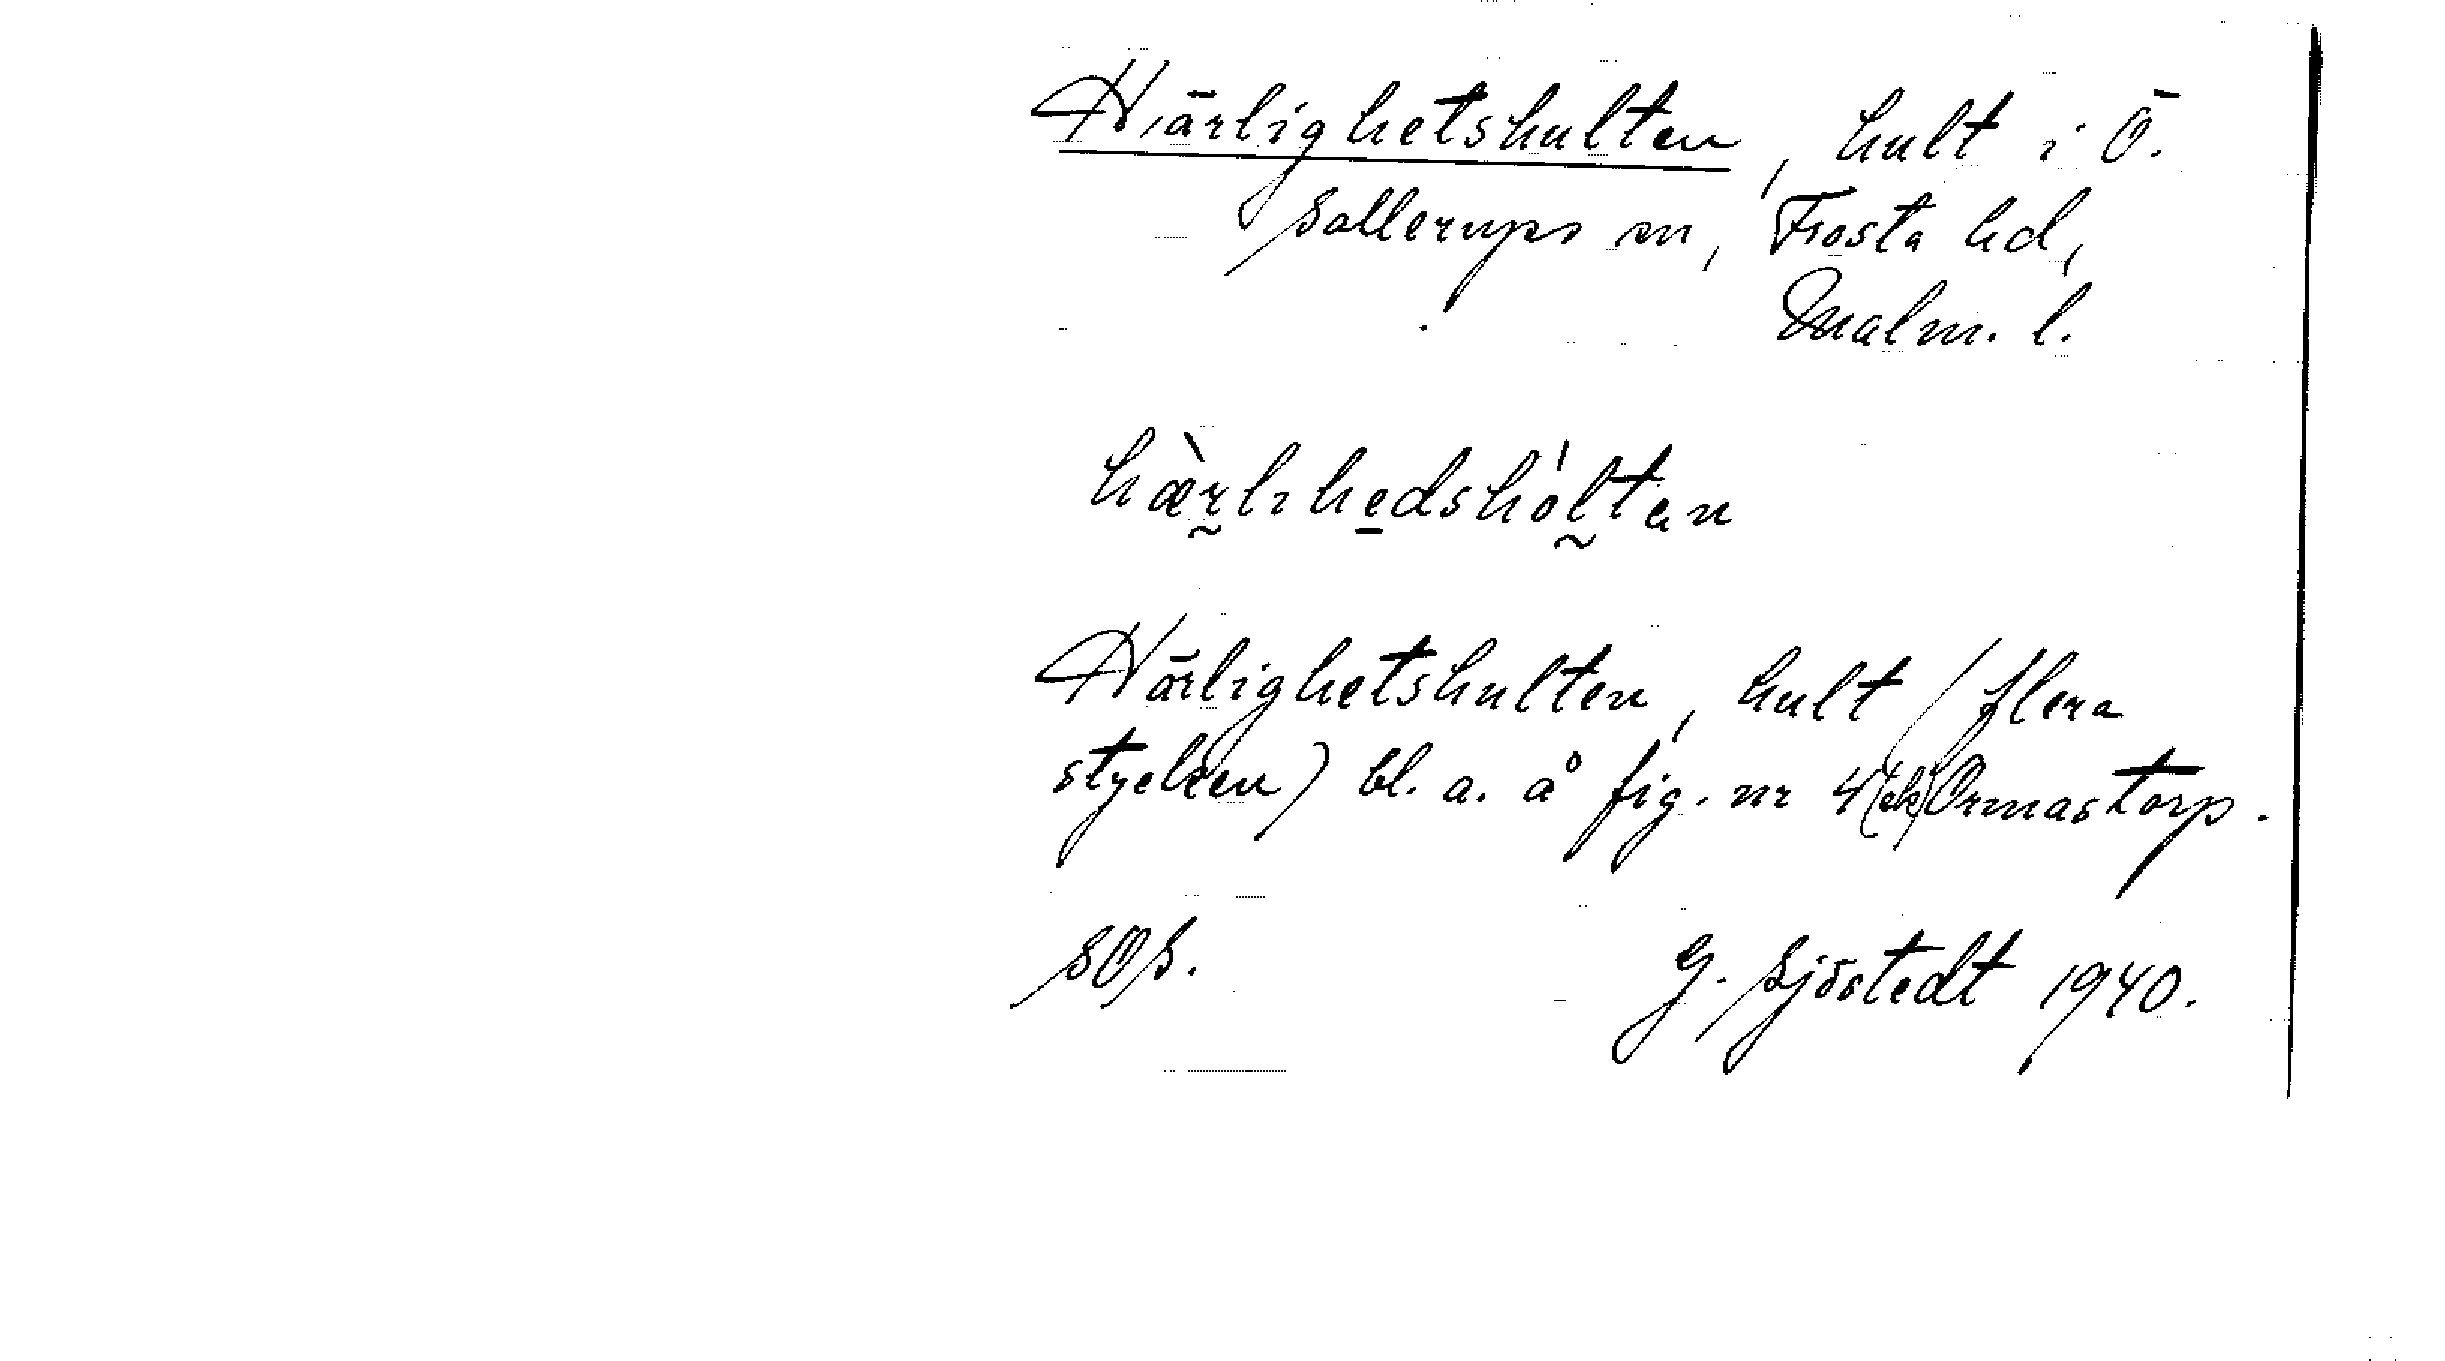 Härlighetshulten, hult i Ö.
Sallerups sn, Frosta hd,
Malm. l.
hæ̀r̰lıhe̱dshól̰tan
Härlighetshulten, hult (flera
stycken) bl. a. å fig. nr 4 (ek) Ormastorp.
SOS.
G. Sjöstedt 1940.